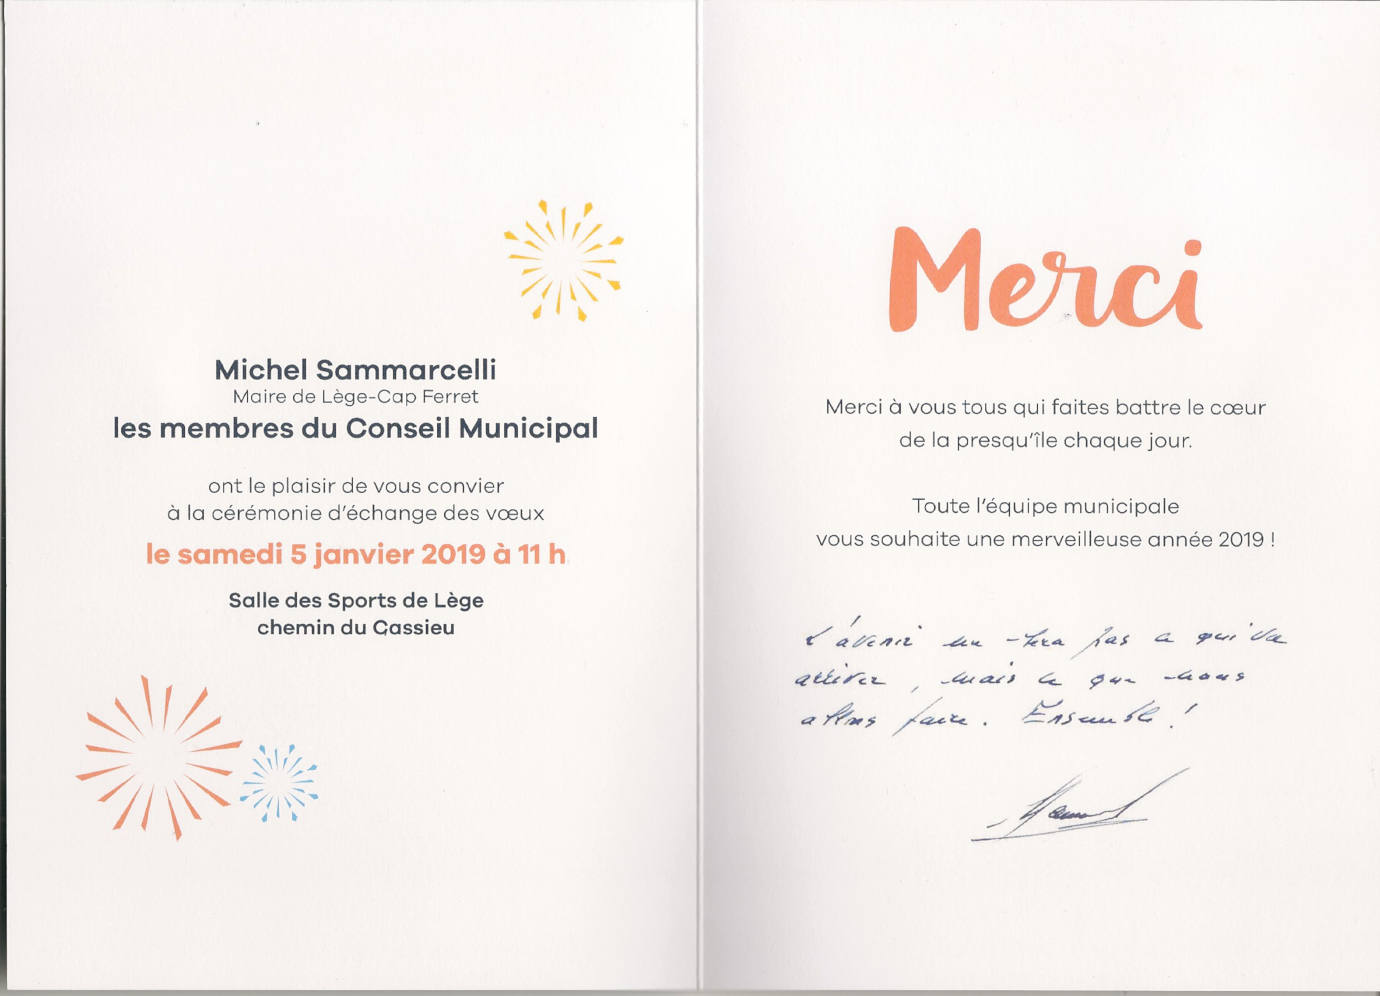 Michel Sammarcelli
Maire de Lège-Cap Ferret
les membres du Conseil Municipal
ont le plaisir de vous convier
à la cérémonie d'échange des vœux
le samedi 5 janvier 2019 à 11 h
Salle des Sports de Lège
chemin du Cassieu
Merci
Merci à vous tous qui faites battre le cœur
de la presqu'île chaque jour.
Toute l'équipe municipale
vous souhaite une merveilleuse année 2019 !
L'avenir ne sera pas ce qui va
arriver, mais ce que nous
allons faire. Ensemble !